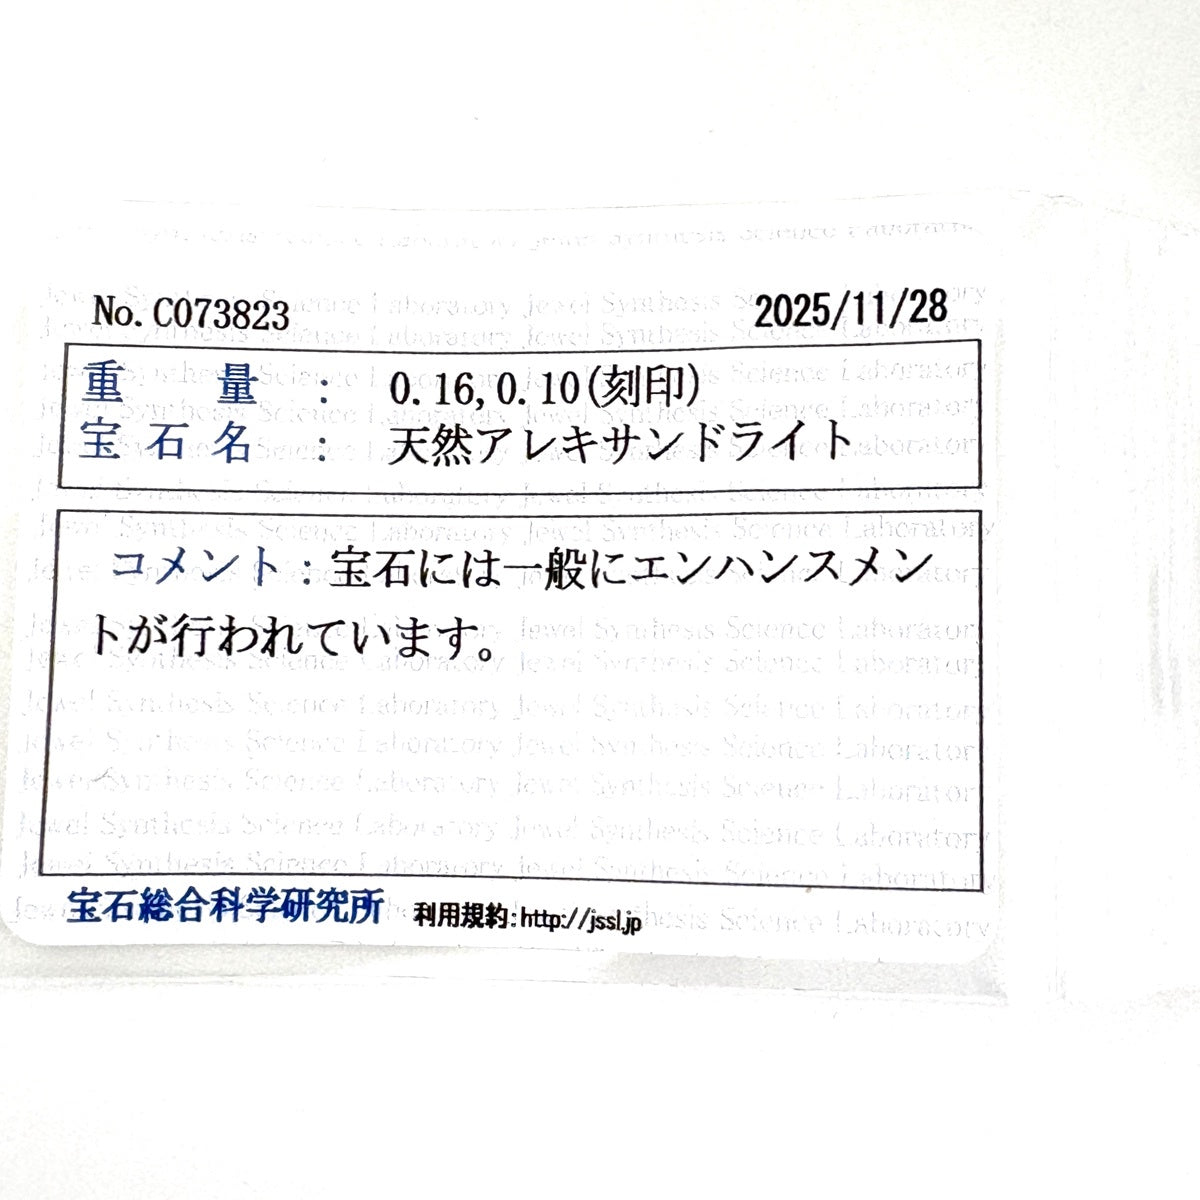 No.C073823
2025/11/28
重量： 0.16,0.10(刻印)
宝石名： 天然アレキサンドライト
コメント：宝石には一般にエンハンスメン
トが行われています。
宝石総合科学研究所 利用規約:http://jssl.jp
Jewel Synthesis Science Laboratory Jewel Synthesis Science Laboratory